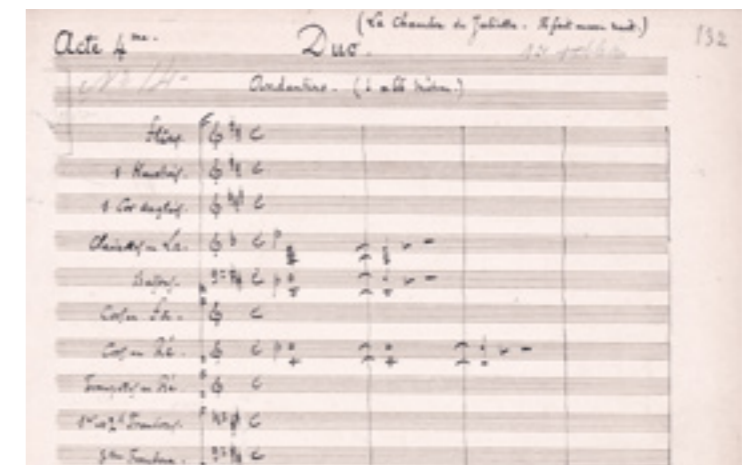 Acte 4me. Duo. (La Chambre de Juliette. Il fait encore nuit.) 132
No 14.
Andantino. (à
Flûtes
1 Hautbois.
1 Cor anglais.
Clarinettes en La.
Bassons.
Cors en
Cors en Ré.
Trompettes en Ré.
1er et 2d Trombones.
3me Trombone.